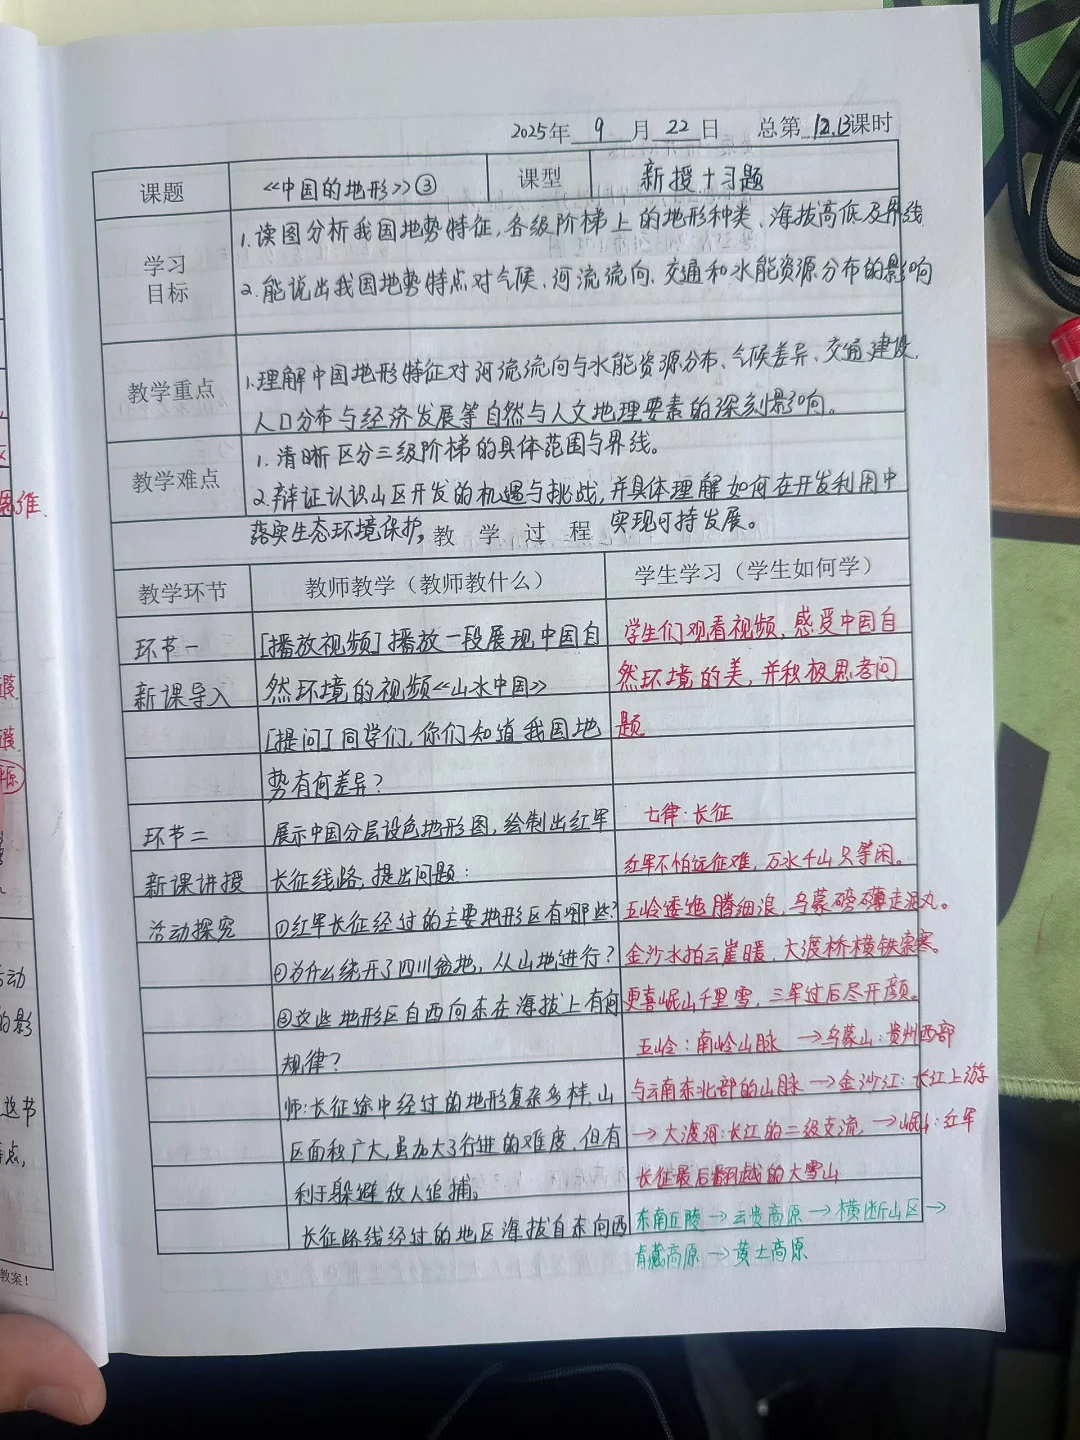 2025年 9 月 22 日 总第 12.13 课时
课题 《中国的地形》③ 课型 新授+习题
学习目标
1.读图分析我国地势特征,各级阶梯上的地形种类、海拔高低及界线
2.能说出我国地势特点对气候、河流流向、交通和水能资源分布的影响
教学重点
1.理解中国地形特征对河流流向与水能资源分布、气候差异、交通建设、
人口分布与经济发展等自然与人文地理要素的深刻影响。
教学难点
1.清晰区分三级阶梯的具体范围与界线。
2.辩证认识山区开发的机遇与挑战,并具体理解如何在开发利用中
落实生态环境保护,实现可持发展。
教 学 过 程
教学环节 教师教学(教师教什么) 学生学习(学生如何学)
环节一 [播放视频]播放一段展现中国自 学生们观看视频,感受中国自
新课导入 然环境的视频《山水中国》 然环境的美,并积极思考问
[提问]同学们,你们知道我国地 题
势有何差异?
环节二 展示中国分层设色地形图,绘制出红军 七律:长征
新课讲授 长征线路,提出问题: 红军不怕远征难,万水千山只等闲。
活动探究 ①红军长征经过的主要地形区有哪些? 五岭逶迤腾细浪,乌蒙磅礴走泥丸。
②为什么绕开了四川盆地,从山地进行? 金沙水拍云崖暖,大渡桥横铁索寒。
③这些地形区自西向东在海拔上有何 更喜岷山千里雪,三军过后尽开颜。
规律? 五岭:南岭山脉 →乌蒙山:贵州西部
师:长征途中经过的地形复杂多样,山 与云南东北部的山脉→金沙江:长江上游
区面积广大,虽加大了行进的难度,但有 →大渡河:长江的二级支流,→岷山:红军
利于躲避敌人追捕。 长征最后翻越的大雪山
长征路线经过的地区海拔自东向西 东南丘陵→云贵高原→横断山区→
青藏高原→黄土高原
思维.
教案!